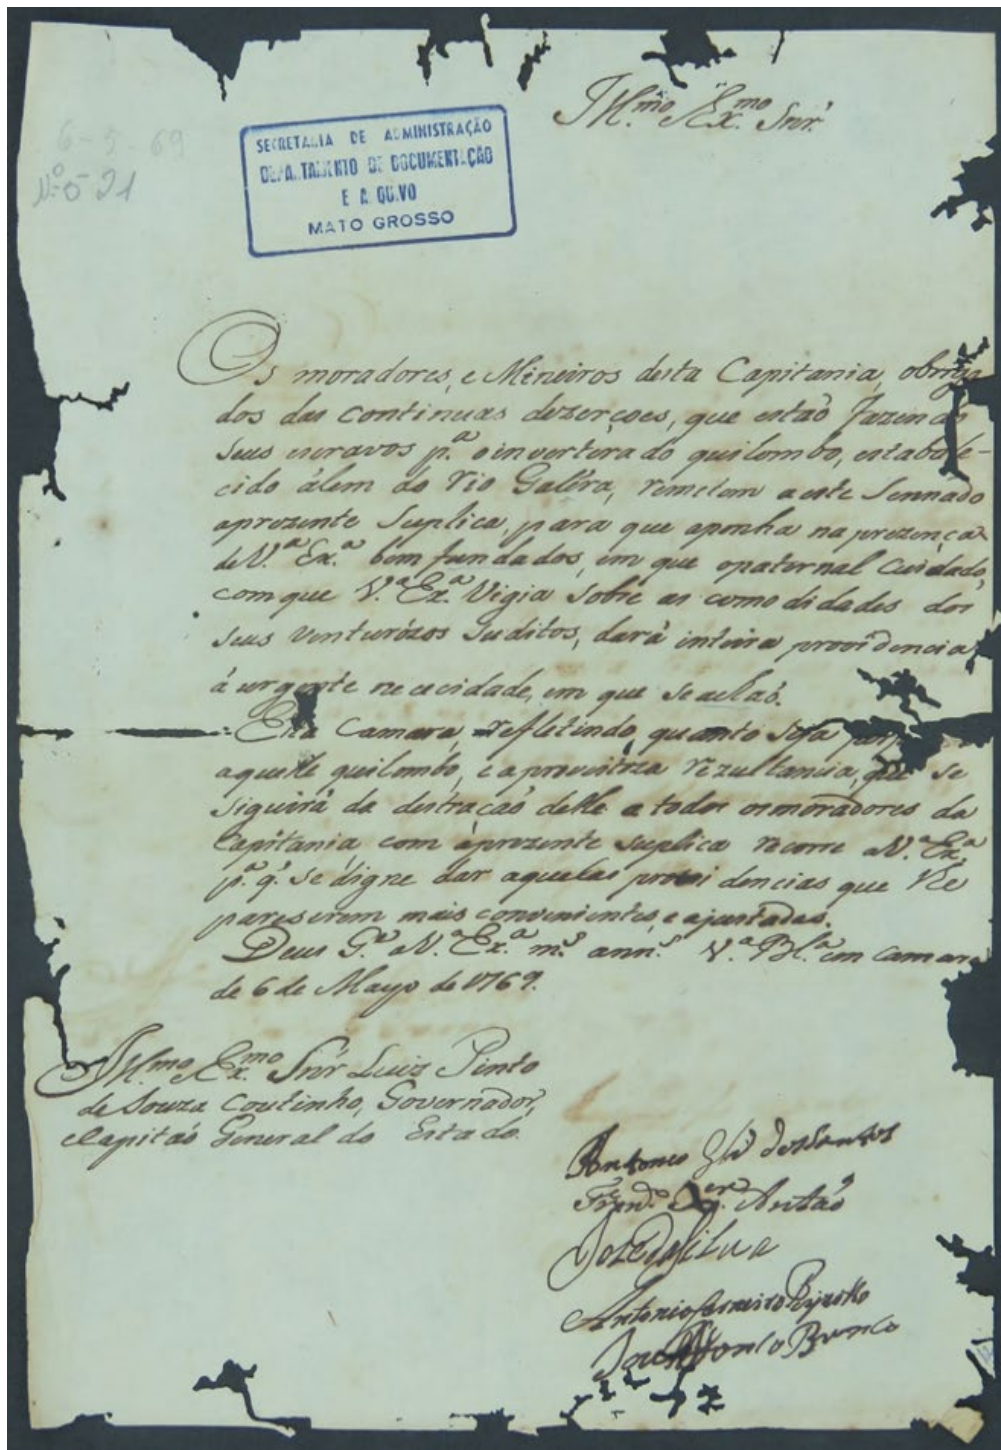 Ill.mo Ex.mo Snr.
6-5-69
Nº 0-21
SECRETARIA DE ADMINISTRAÇÃO
DEPARTAMENTO DE DOCUMENTAÇÃO
E ARQUIVO
MATO GROSSO
Os moradores, e Mineiros desta Capitania, obriga
dos das continuas dezerçoes, que estaõ fazendo
seus escravos p.ª o inverterado quilombo, estabele-
cido álem do rio Galéra, remetem a este Sennado
aprezente suplica, para que aponha na prezença
de V.ª Ex.ª bem fundados, em que opaternal cuidado,
com que V.ª Ex.ª Vigia sobre as comodidades dos
seus venturózos suditos, dará inteira providencia
á urgente nececidade, em que se achaõ.
Esta Camara, refletindo, quanto seja
aquelle quilombo, e a proveitoza rezultancia, que se
siguirá da destraçaõ delle a todos os moradores da
Capitania com áprezente suplica recorre a V.ª Ex.ª
p.ª q. se digne dar aquelas providencias que lhe
pareserem mais convenientes, e ajustadas.
Deus G.e a V.ª Ex.ª m.s ann.s V.ª Bl.ª em Camara
de 6 de Mayo de 1769.
Ill.mo Ex.mo Snr Luiz Pinto
de Souza Coutinho, Governador,
Capitaõ General do Estado.
Antonio dos Santos
Antaõ
Joze da Silva
Antonio
Branco